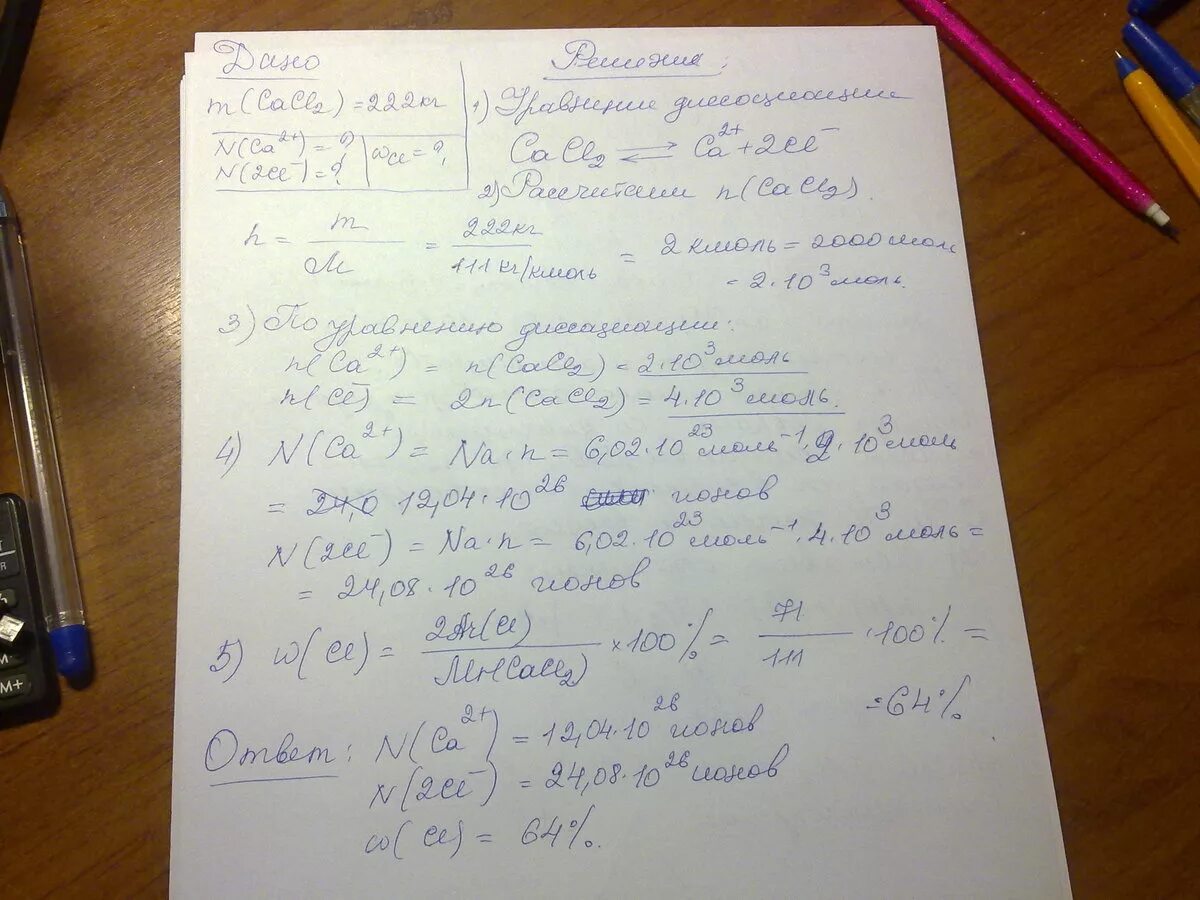 Дано
Решения:
m(CaCl₂) = 222кг
N(Ca²⁺) = ?
N(2Cl⁻) = ?
ωCl = ?
1) Уравнение диссоциации
CaCl₂ ⇄ Ca²⁺ + 2Cl⁻
2) Рассчитаем n(CaCl₂).
n = m/M = 222кг / 111 кг/кмоль = 2 кмоль = 2000 моль
= 2·10³ моль.
3) По уравнению диссациации:
n(Ca²⁺) = n(CaCl₂) = 2·10³ моль
n(Cl⁻) = 2n(CaCl₂) = 4·10³ моль.
4) N(Ca²⁺) = Na·n = 6,02·10²³ моль⁻¹·2·10³ моль
= 24,0 12,04·10²⁶ ионов
N(2Cl⁻) = Na·n = 6,02·10²³ моль⁻¹·4·10³ моль =
= 24,08·10²⁶ ионов
5) ω(Cl) = 2Ar(Cl) / Mr(CaCl₂) ×100% = 71/111 ·100% =
= 64%
Ответ: N(Ca²⁺) = 12,04·10²⁶ ионов
N(2Cl⁻) = 24,08·10²⁶ ионов
ω(Cl) = 64%.
M+